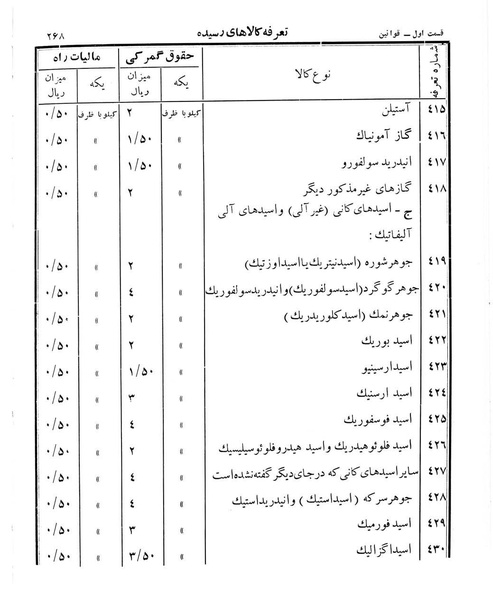 قسمت اول ــ قوانین تعرفه کالاهای رسیده ۲۶۸
شماره تعرفه نوع کالا حقوق گمرکی مالیات راه
یکه میزان ریال یکه میزان ریال
۴۱۵ آستیلن کیلو با ظرف ۲ کیلو با ظرف ۰/۵۰
۴۱۶ گاز آمونیاك » ۱/۵۰ » ۰/۵۰
۴۱۷ انیدرید سولفورو » ۱/۵۰ » ۰/۵۰
۴۱۸ گازهای غیرمذکور دیگر » ۲ » ۰/۵۰
ج ــ اسیدهای کانی (غیرآلی) و اسیدهای آلی
آلیفاتیك :
۴۱۹ جوهرشوره (اسیدنیتریك یا اسیدازوتیك) » ۲ » ۰/۵۰
۴۲۰ جوهرگوگرد (اسیدسولفوریك) وانیدریدسولفوریك » ۴ » ۰/۵۰
۴۲۱ جوهرنمك (اسید کلوریدریك) » ۲ » ۰/۵۰
۴۲۲ اسید بوریك » ۲ » ۰/۵۰
۴۲۳ اسیدارسینیو » ۱/۵۰ » ۰/۵۰
۴۲۴ اسید ارسنیك » ۳ » ۰/۵۰
۴۲۵ اسید فوسفوریك » ۴ » ۰/۵۰
۴۲۶ اسید فلوئوهیدریك و اسید هیدروفلوئوسیلیسیك » ۲ » ۰/۵۰
۴۲۷ سایر اسیدهای کانی که درجای دیگر گفته نشده است » ۴ » ۰/۵۰
۴۲۸ جوهرسرکه (اسیداستیك) وانیدریداستیك » ۴ » ۰/۵۰
۴۲۹ اسید فورمیك » ۳ » ۰/۵۰
۴۳۰ اسیداگزالیك » ۳/۵۰ » ۰/۵۰